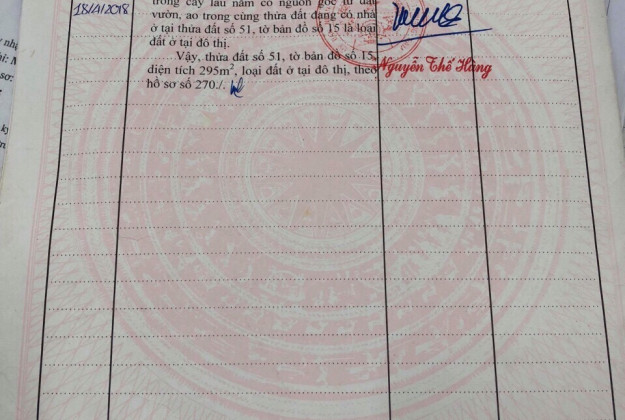 18/4/2018
trồng cây lâu năm có nguồn gốc từ đất
vườn, ao trong cùng thửa đất đang có nhà
ở tại thửa đất số 51, tờ bản đồ số 15 là loại
đất ở tại đô thị.
Vậy, thửa đất số 51, tờ bản đồ số 15,
diện tích 295m², loại đất ở tại đô thị, theo
hồ sơ số 270./.
Nguyễn Thế Hùng